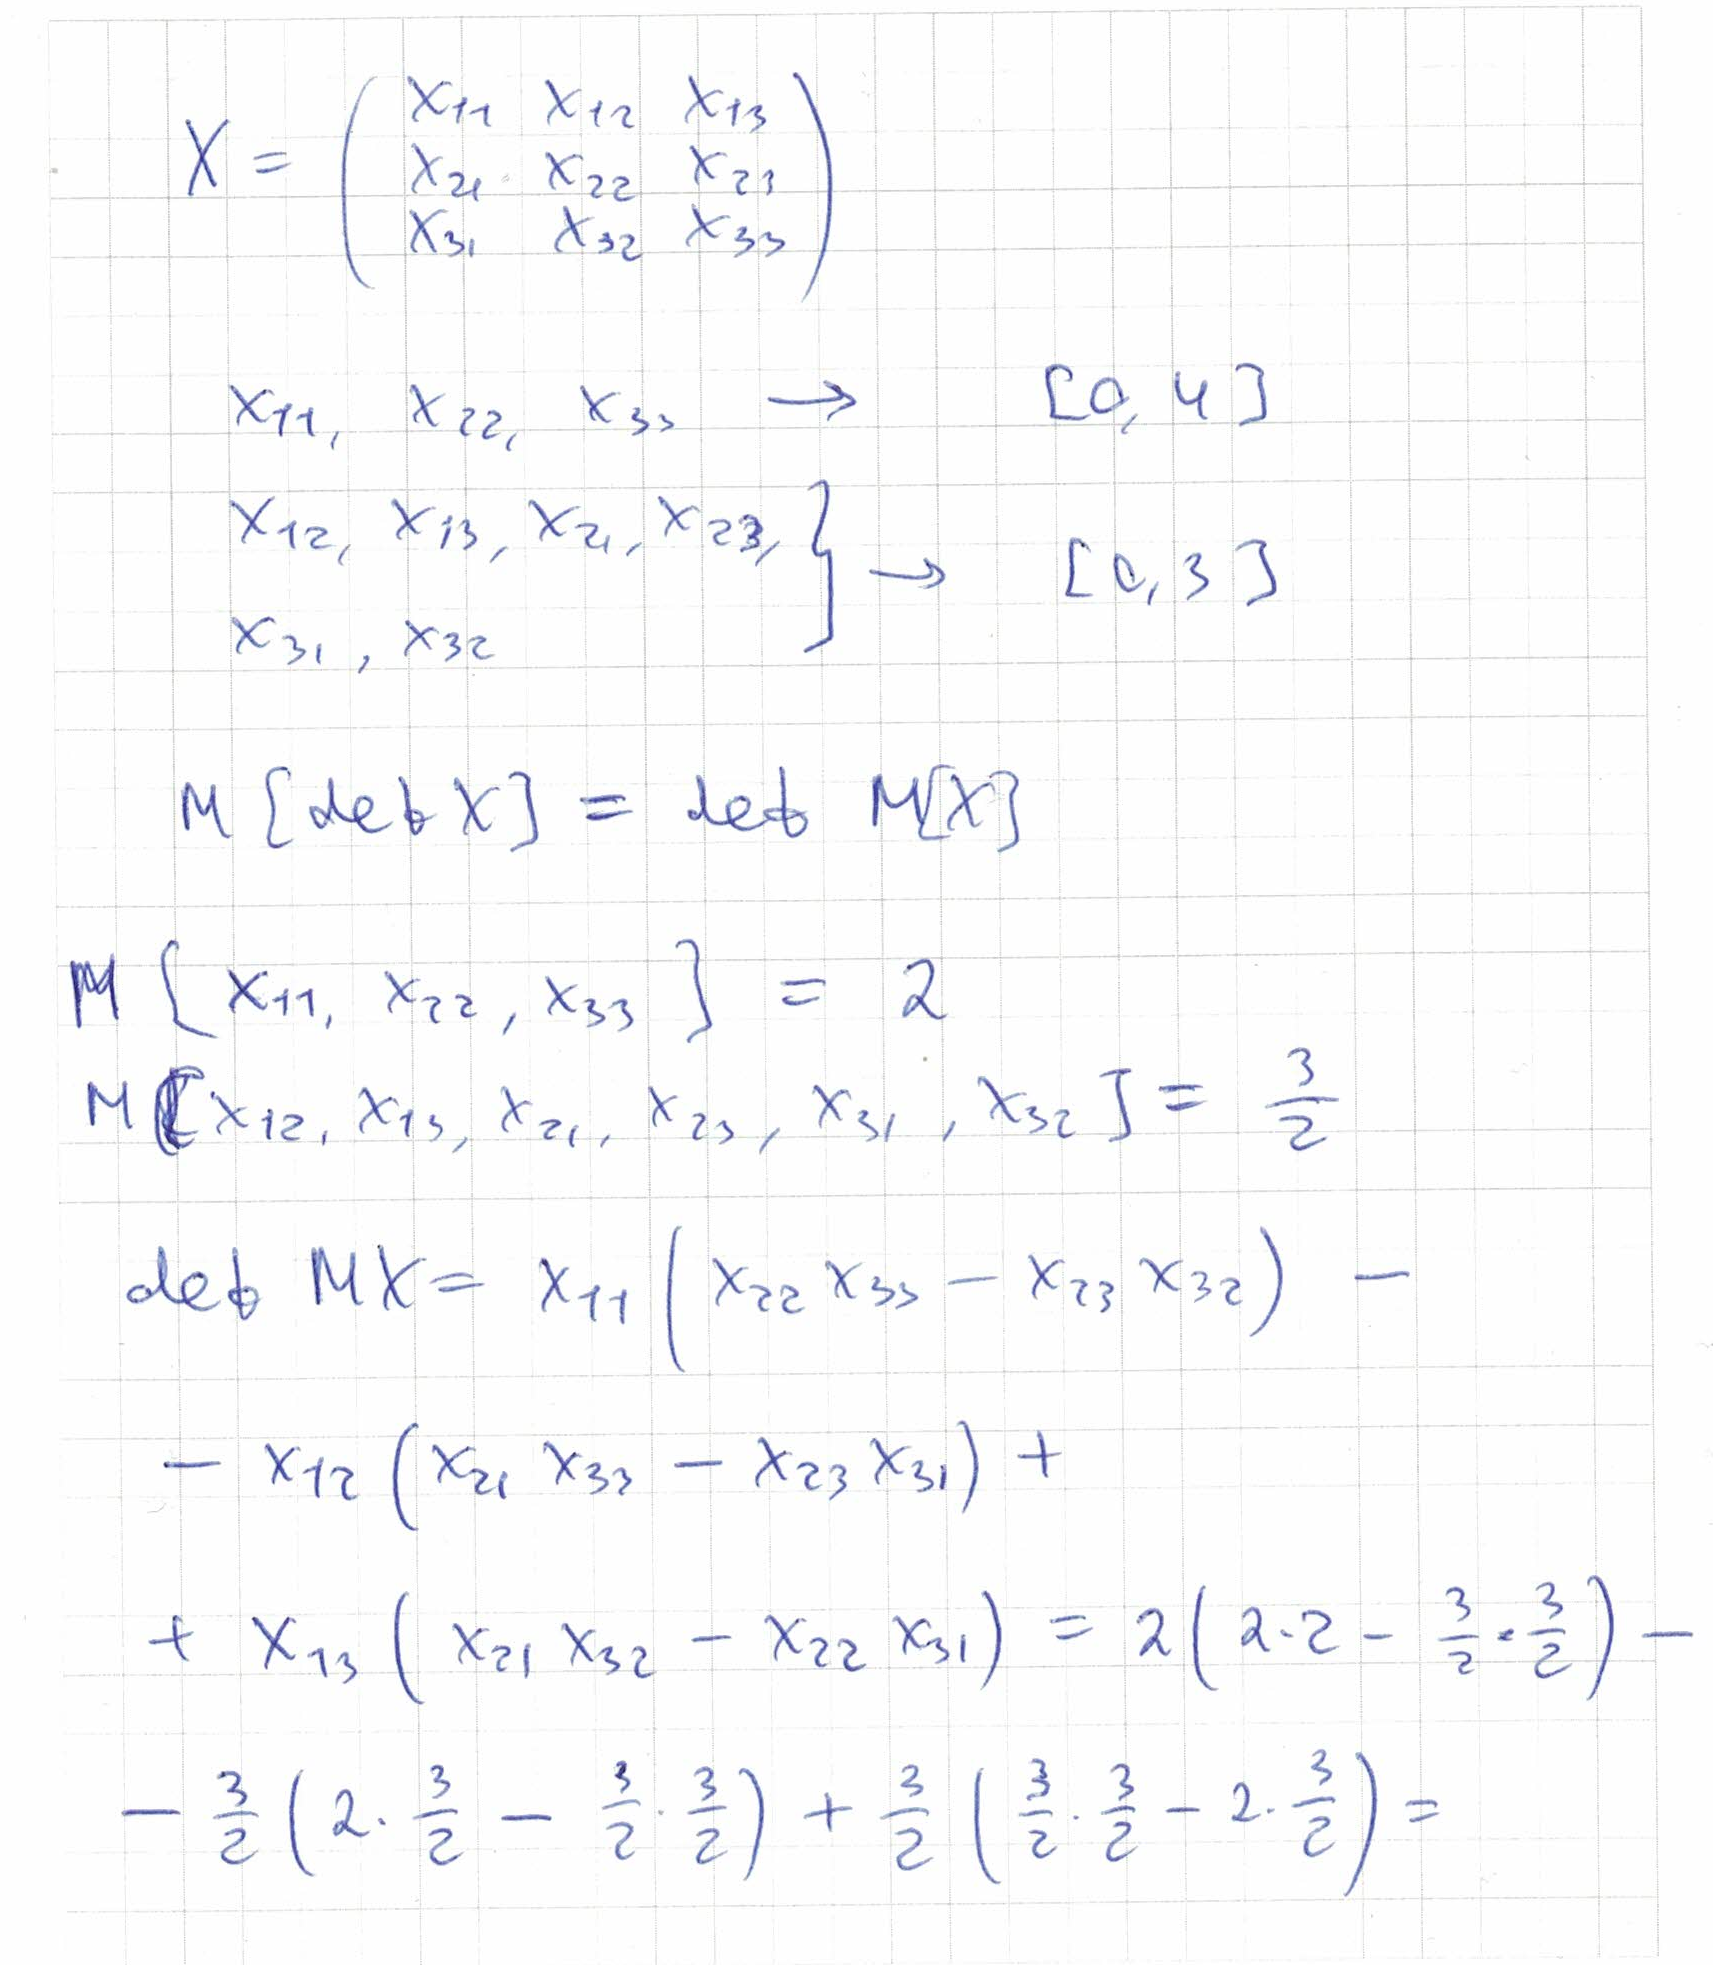 X = ( x₁₁ x₁₂ x₁₃
x₂₁ x₂₂ x₂₃
x₃₁ x₃₂ x₃₃ )
x₁₁, x₂₂, x₃₃ → [0, 4]
x₁₂, x₁₃, x₂₁, x₂₃, } → [0, 3]
x₃₁, x₃₂
M[det X] = det M[X]
M[x₁₁, x₂₂, x₃₃] = 2
M[x₁₂, x₁₃, x₂₁, x₂₃, x₃₁, x₃₂] = 3/2
det MX = x₁₁ (x₂₂ x₃₃ - x₂₃ x₃₂) -
- x₁₂ (x₂₁ x₃₃ - x₂₃ x₃₁) +
+ x₁₃ (x₂₁ x₃₂ - x₂₂ x₃₁) = 2(2·2 - 3/2 · 3/2) -
- 3/2 (2 · 3/2 - 3/2 · 3/2) + 3/2 (3/2 · 3/2 - 2 · 3/2) =